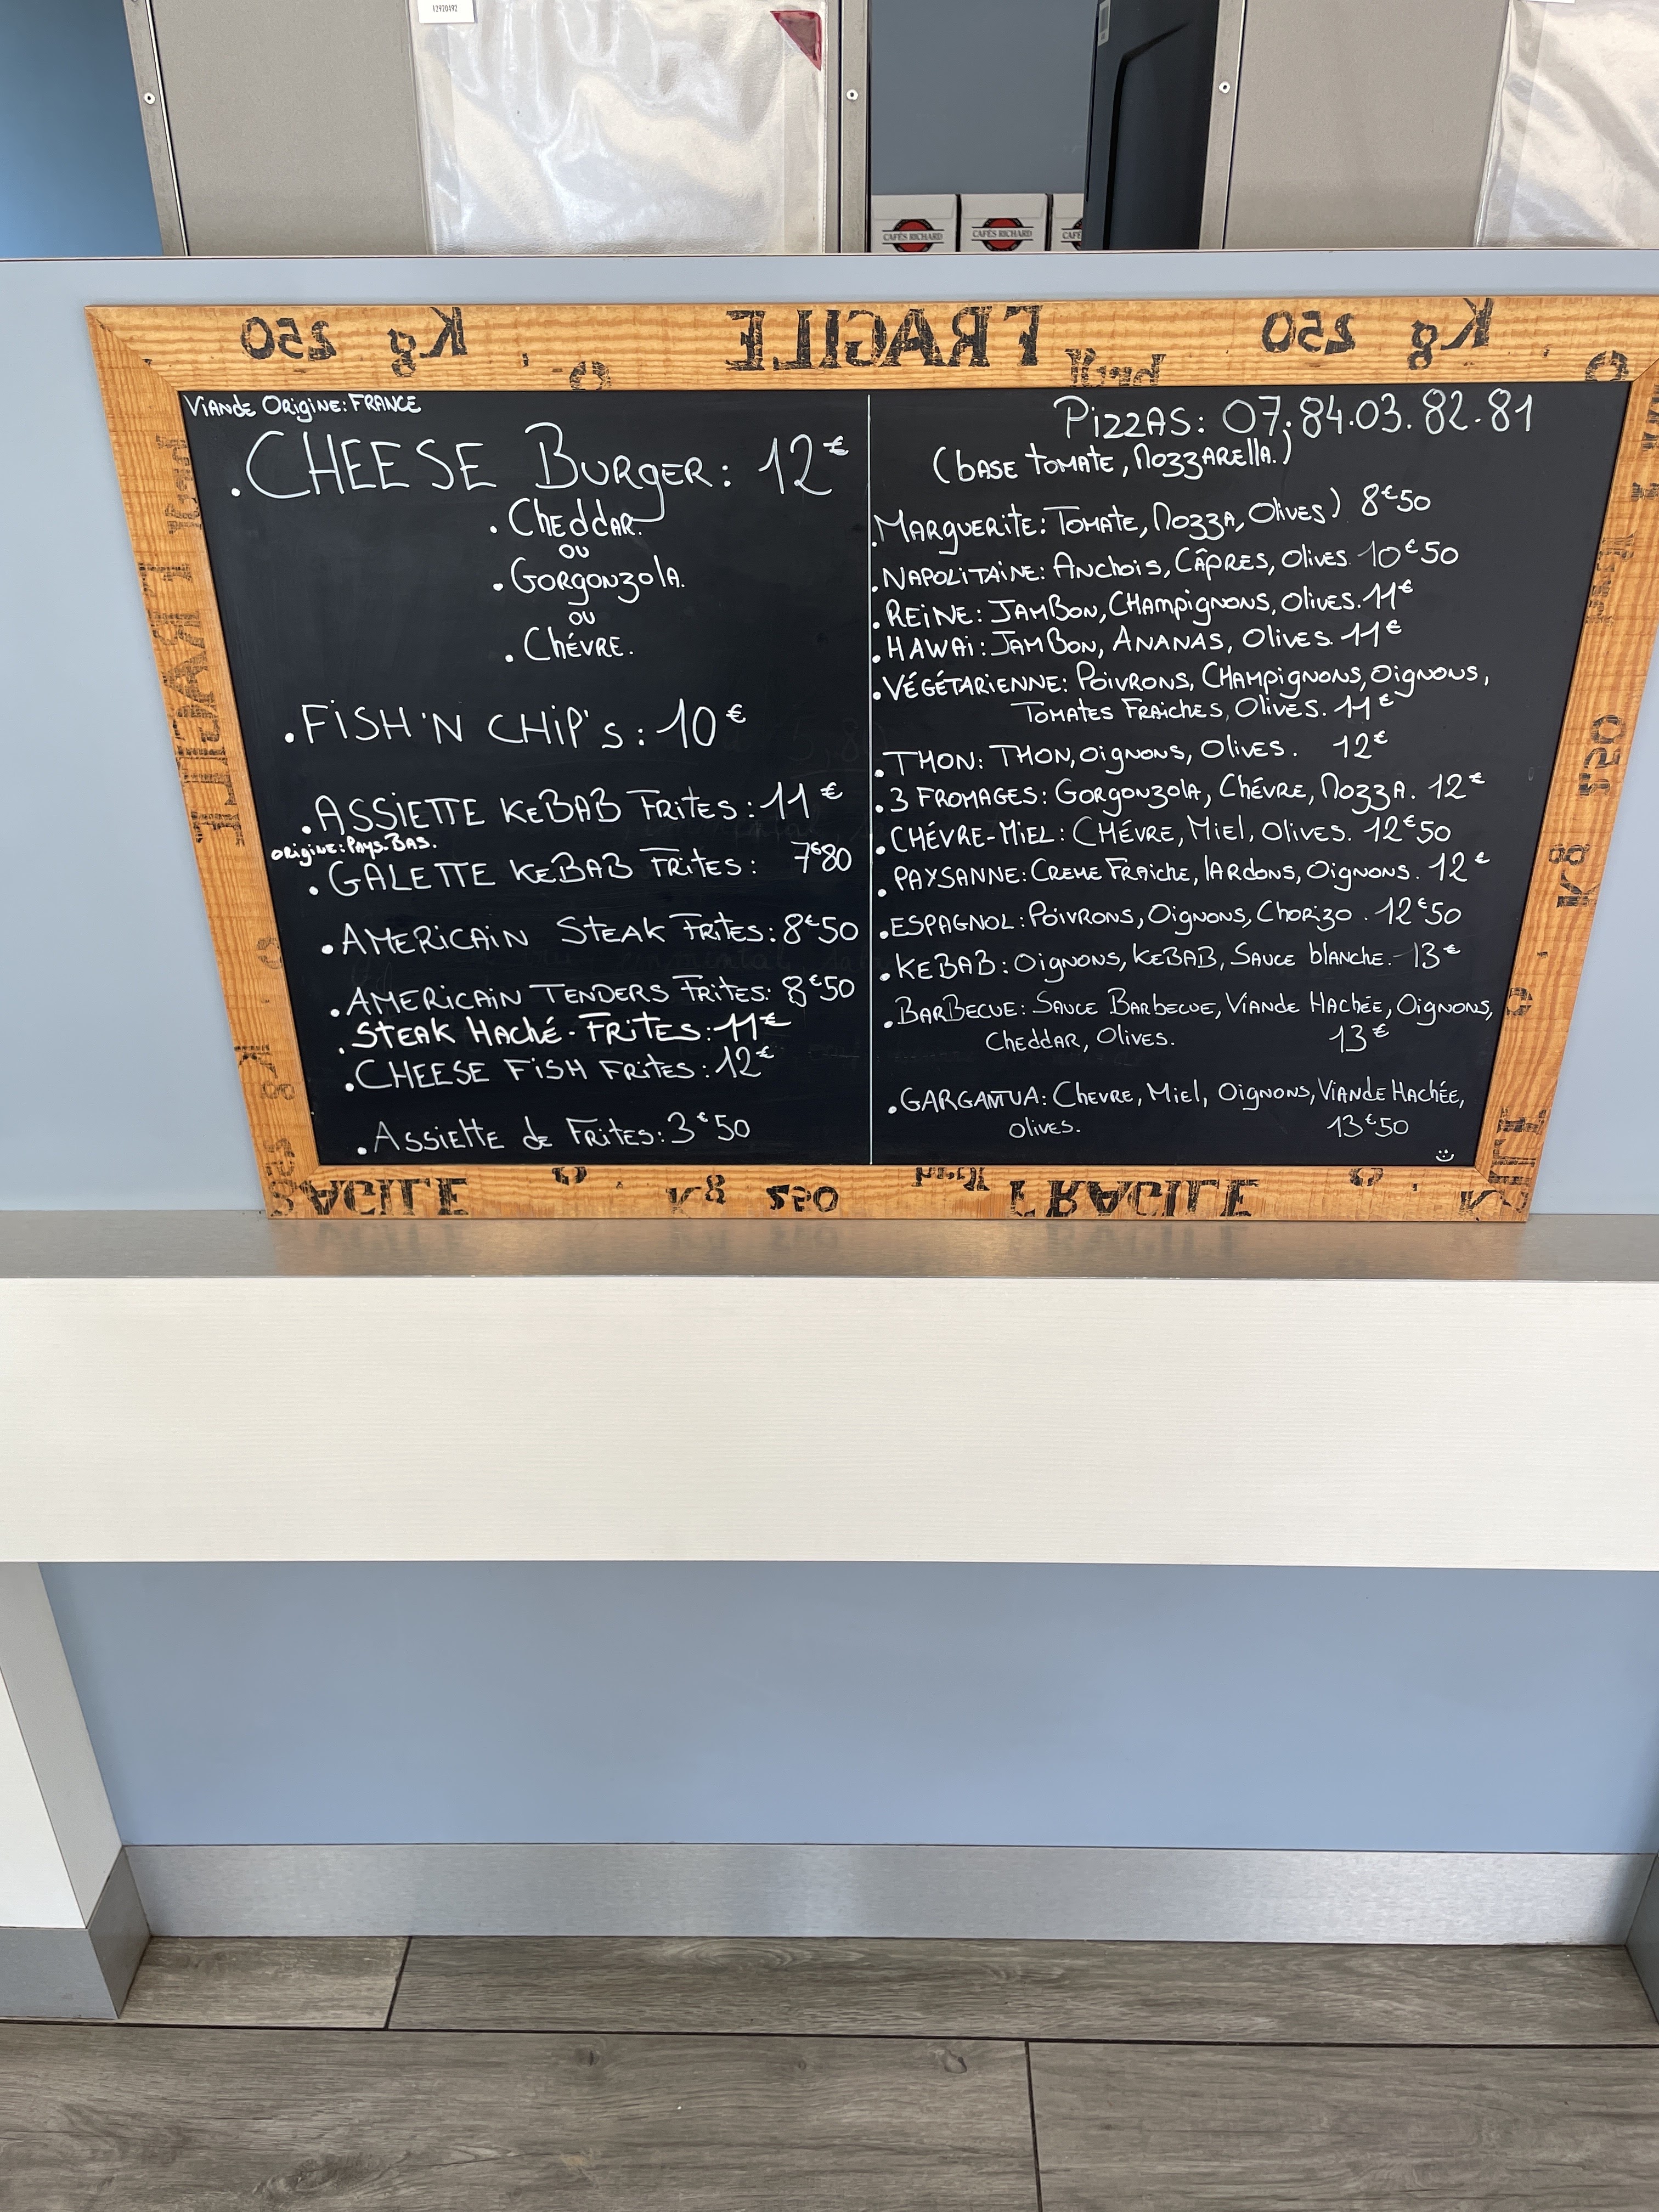 12920492
CAFÉS RICHARD
CAFÉS RICHARD
CAFE
250 Kg FRAGILE 250 Kg
VIANDE ORIGINE: FRANCE
. CHEESE BURGER: 12€
. Cheddar.
ou
. Gorgonzola.
ou
. Chévre.
. FISH 'N CHIP's : 10€
. ASSIETTE KEBAB FRITES : 11€
ORIGINE: PAYS-BAS.
. GALETTE KEBAB FRITES : 7€80
. AMERICAIN STEAK FRITES : 8€50
. AMERICAIN TENDERS FRITES: 8€50
. STEAK HACHÉ - FRITES : 11€
. CHEESE FISH FRITES : 12€
. ASSIETTE de FRITES : 3€50
PIZZAS : 07.84.03.82.81
(base tomate, Mozzarella.)
. MARGUERITE: TOMATE, MOZZA, Olives) 8€50
. NAPOLITAINE: ANCHOIS, CÂPRES, Olives. 10€50
. REINE: JAMBON, CHAMPIGNONS, Olives. 11€
. HAWAI : JAMBON, ANANAS, Olives. 11€
. VÉGÉTARIENNE: POIVRONS, CHAMPIGNONS, OIGNONS,
TOMATES FRAICHES, Olives. 11€
. THON: THON, OIGNONS, Olives. 12€
. 3 FROMAGES: GORGONZOLA, CHÉVRE, MOZZA. 12€
. CHÉVRE-MIEL: CHÉVRE, MIEL, Olives. 12€50
. PAYSANNE: CREME FRAICHE, lARDONS, OIGNONS. 12€
. ESPAGNOL: POIVRONS, OIGNONS, CHORIZO. 12€50
. KEBAB: OIGNONS, KEBAB, SAUCE blANCHE. 13€
. BARBECUE: SAUCE BARBECUE, VIANDE HACHÉE, OIGNONS,
CHEDDAR, Olives. 13€
. GARGANTUA: CHEVRE, MIEL, OIGNONS, VIANDE HACHÉE,
Olives. 13€50
FRAGILE
Kg 250
Kg 250
FRAGILE